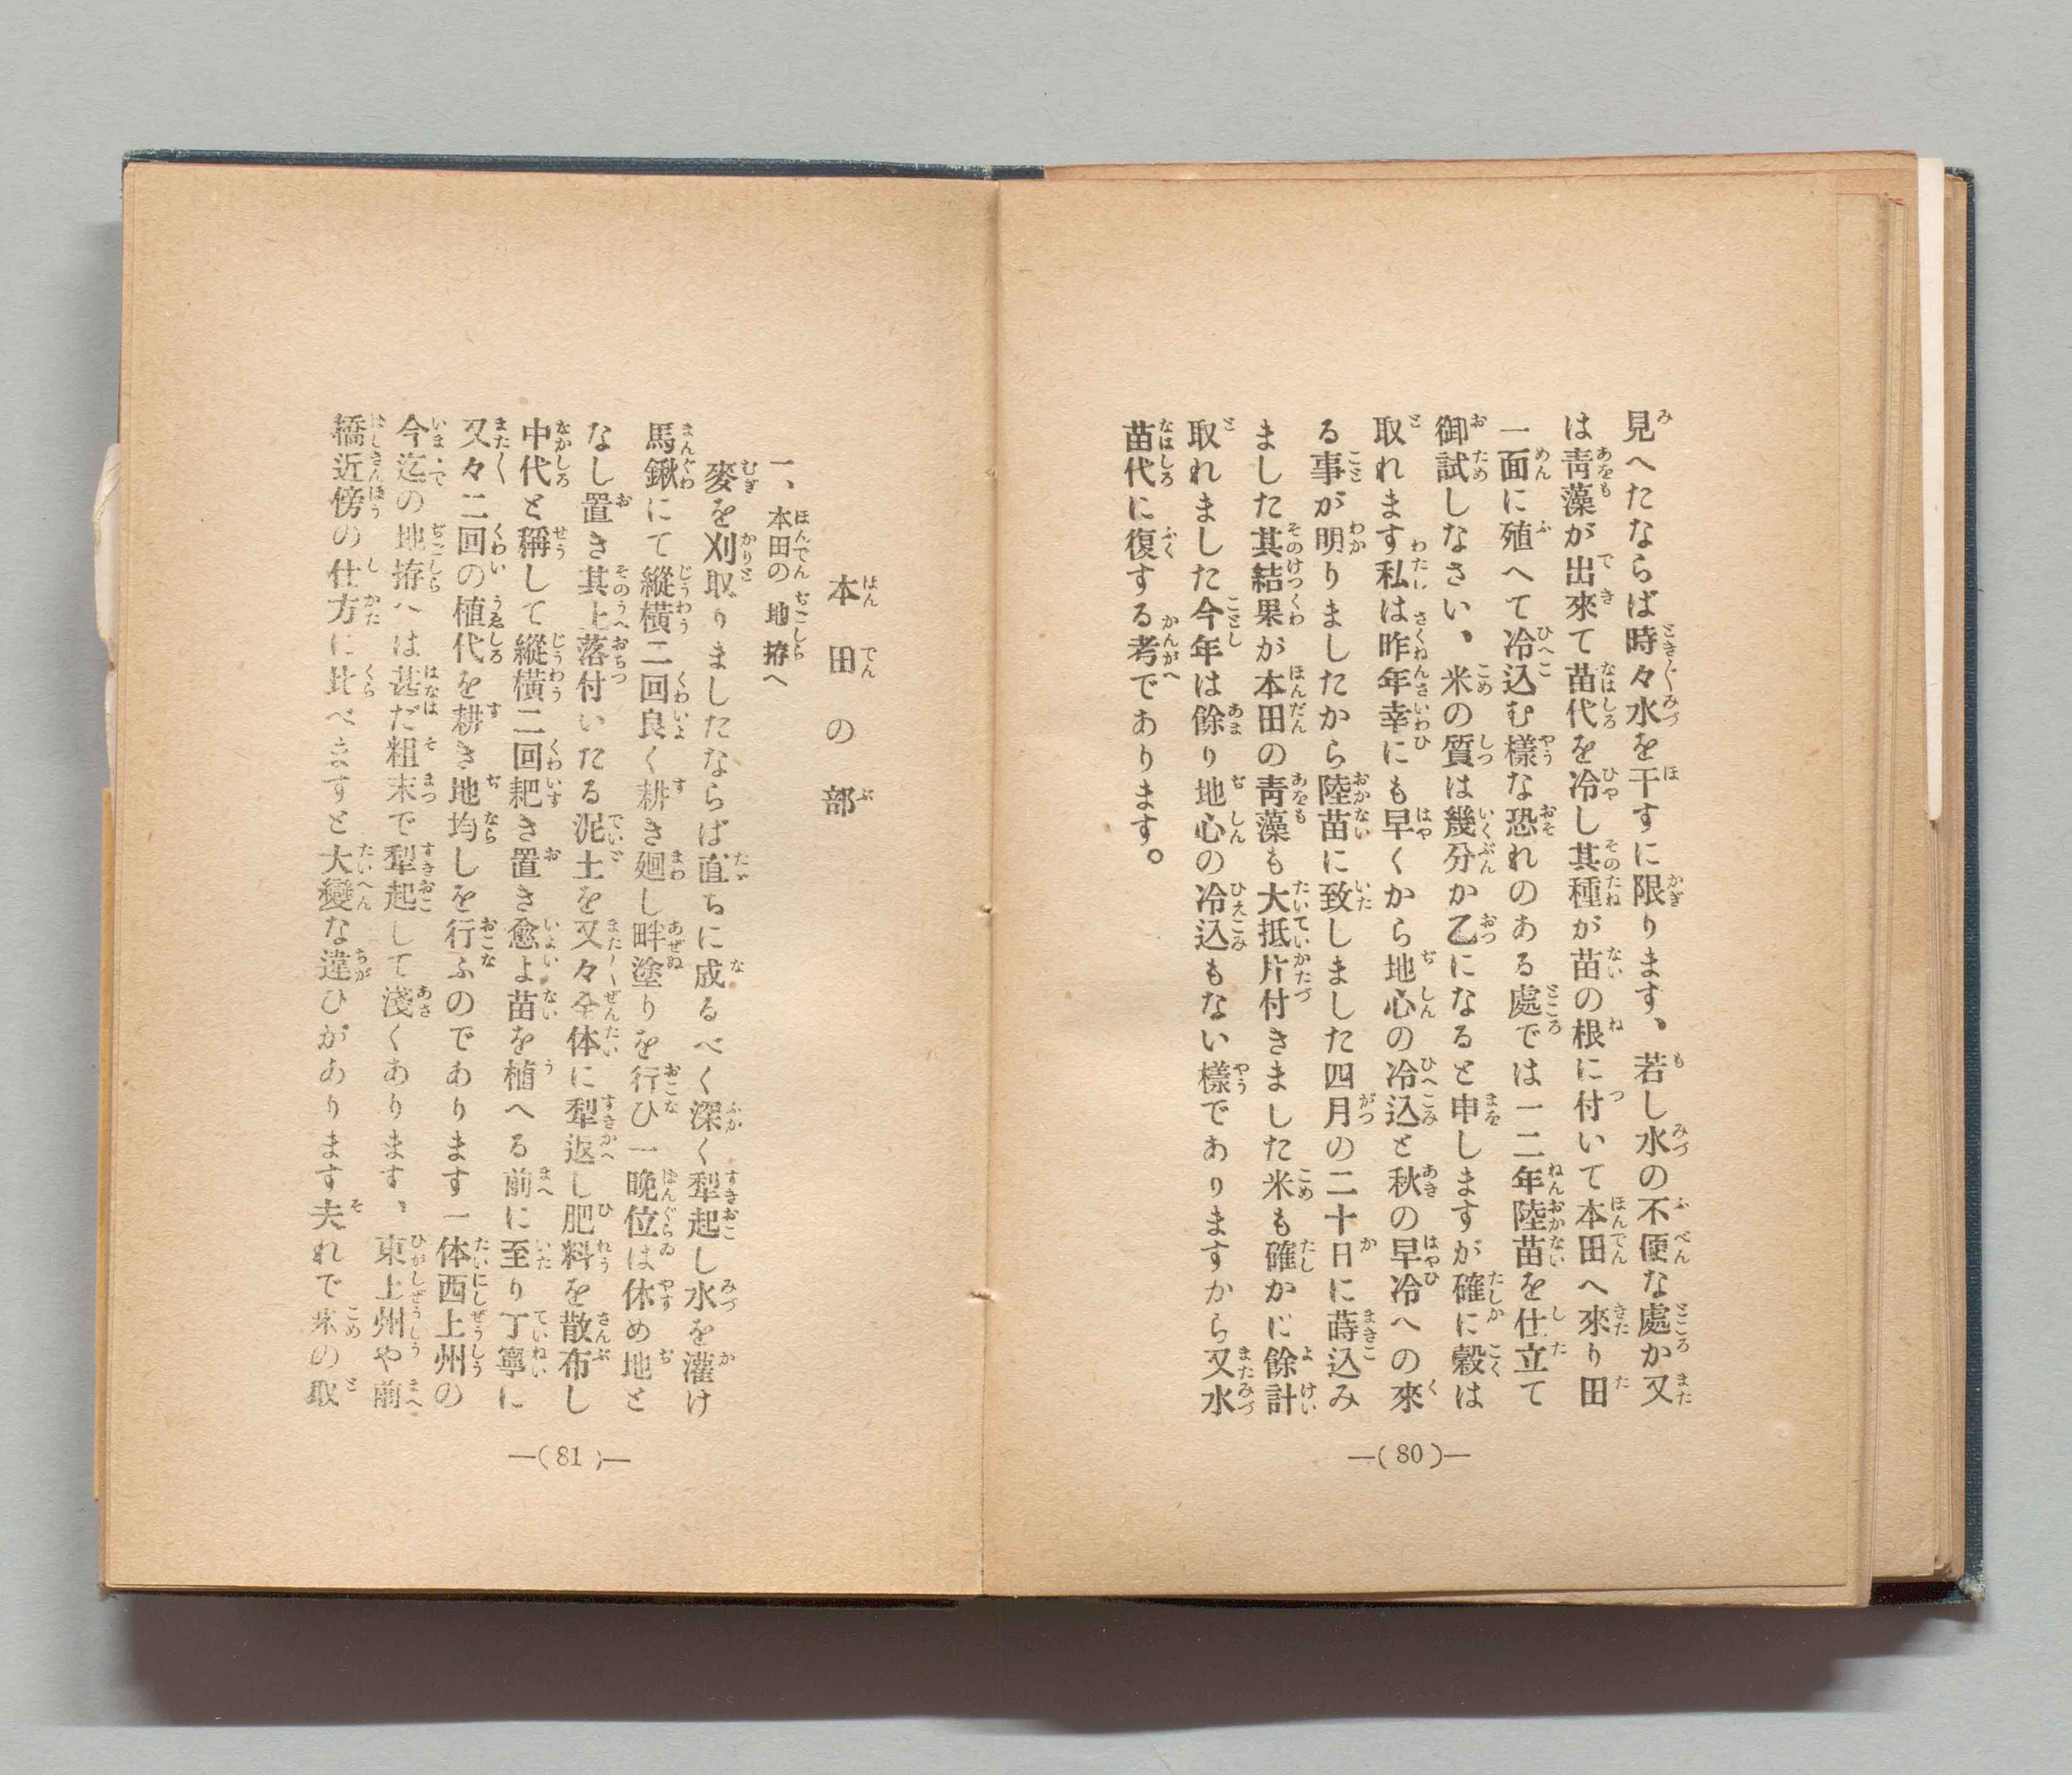 見へたならば時々水を干すに限ります、若し水の不便な處か又
は靑藻が出來て苗代を冷し其種が苗の根に付いて本田へ來り田
一面に殖へて冷込む樣な恐れのある處では一二年陸苗を仕立て
御試しなさい、米の質は幾分か乙になると申しますが確に穀は
取れます私は昨年幸にも早くから地心の冷込と秋の早冷への來
る事が明りましたから陸苗に致しました四月の二十日に蒔込み
ました其結果が本田の靑藻も大抵片付きました米も確かに餘計
取れました今年は餘り地心の冷込もない樣でありますから又水
苗代に復する考であります。
―(80)―
本田の部
一、本田の地拵へ
麥を刈取りましたならば直ちに成るべく深く犁起し水を灌け
馬鍬にて縱橫二回良く耕き廻し畔塗りを行ひ一晩位は休め地と
なし置き其上落付いたる泥土を又々全体に犁返し肥料を散布し
中代と稱して縱橫二回耙き置き愈よ苗を植へる前に至り丁寧に
又々二回の植代を耕き地均しを行ふのであります一体西上州の
今迄の地拵へは甚だ粗末で犁起して淺くあります、東上州や前
橋近傍の仕方に比べますと大變な違ひがあります夫れで米の取
―(81)―